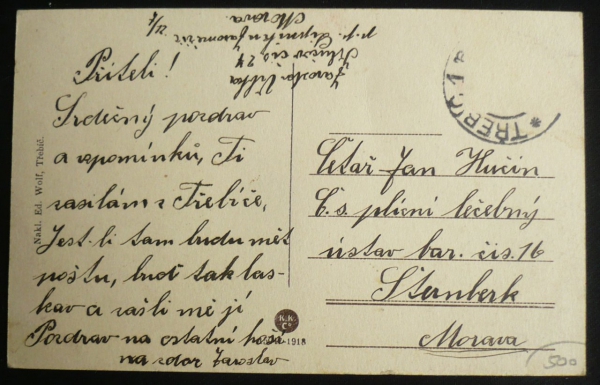 Příteli!
Srdečný pozdrav
a vzpomínku, Ti
zasílám z Třebíče,
Jest-li tam budu mět
poštu, buď tak las-
kav a zašli mě jí
Pozdrav na ostatní
na zdar Jaroslav
Jaroslav
čís 24
Morava
Nakl. Ed. Wolf, Třebíč.
K.K.
1918
TŘEBÍČ 1
Četař Jan Hučín
č. s. plicní léčebný
ústav bar. čís. 16
Šternberk
Morava
500